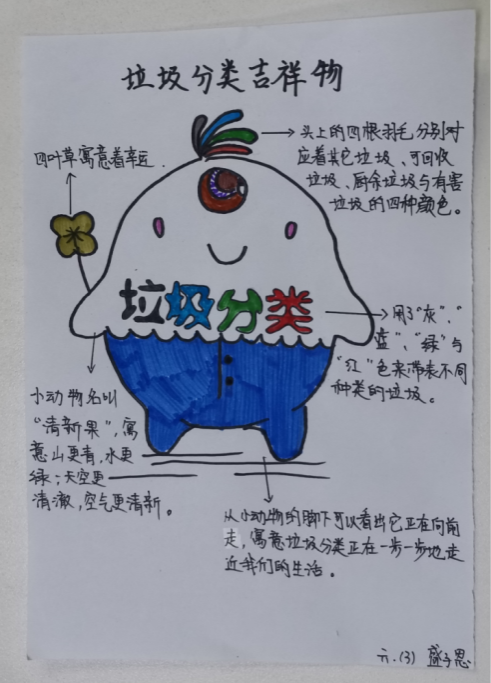 垃圾分类吉祥物
四叶草寓意着幸运
头上的四根羽毛分别对
应着其它垃圾、可回收
垃圾、厨余垃圾与有害
垃圾的四种颜色。
垃圾分类
用了“灰”、“
蓝”、“绿”与
“红”色来带表不同
种类的垃圾。
小动物名叫
“清新果”,寓
意山更青,水更
绿;天空更
清澈,空气更清新。
从小动物的脚下可以看出它正在向前
走,寓意垃圾分类正在一步一步地走
近我们的生活。
六.(3) 盛子恩